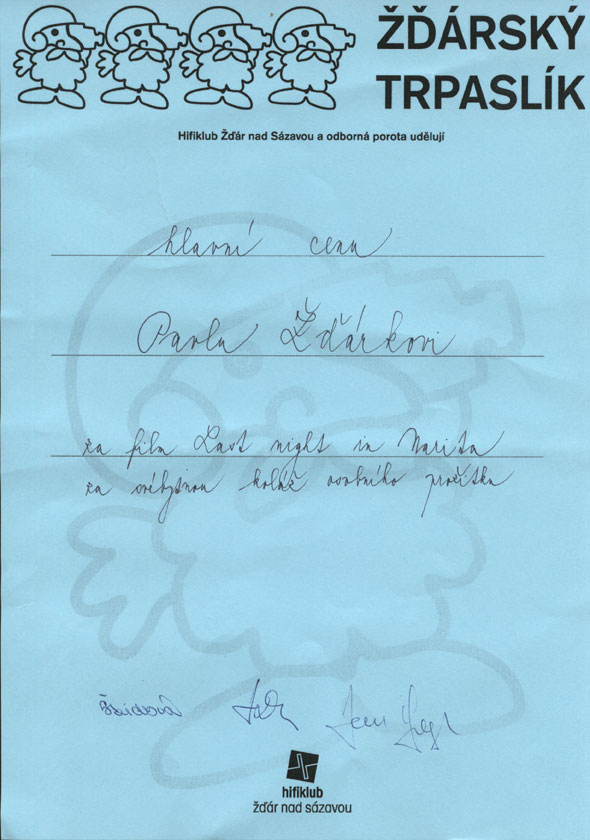 ŽĎÁRSKÝ
TRPASLÍK
Hifiklub Žďár nad Sázavou a odborná porota udělují
hlavní cenu
Pavlu Žďárkovi
za film Last night in Narita
za svébytnou koláž osobního prožitku
hifiklub
žďár nad sázavou